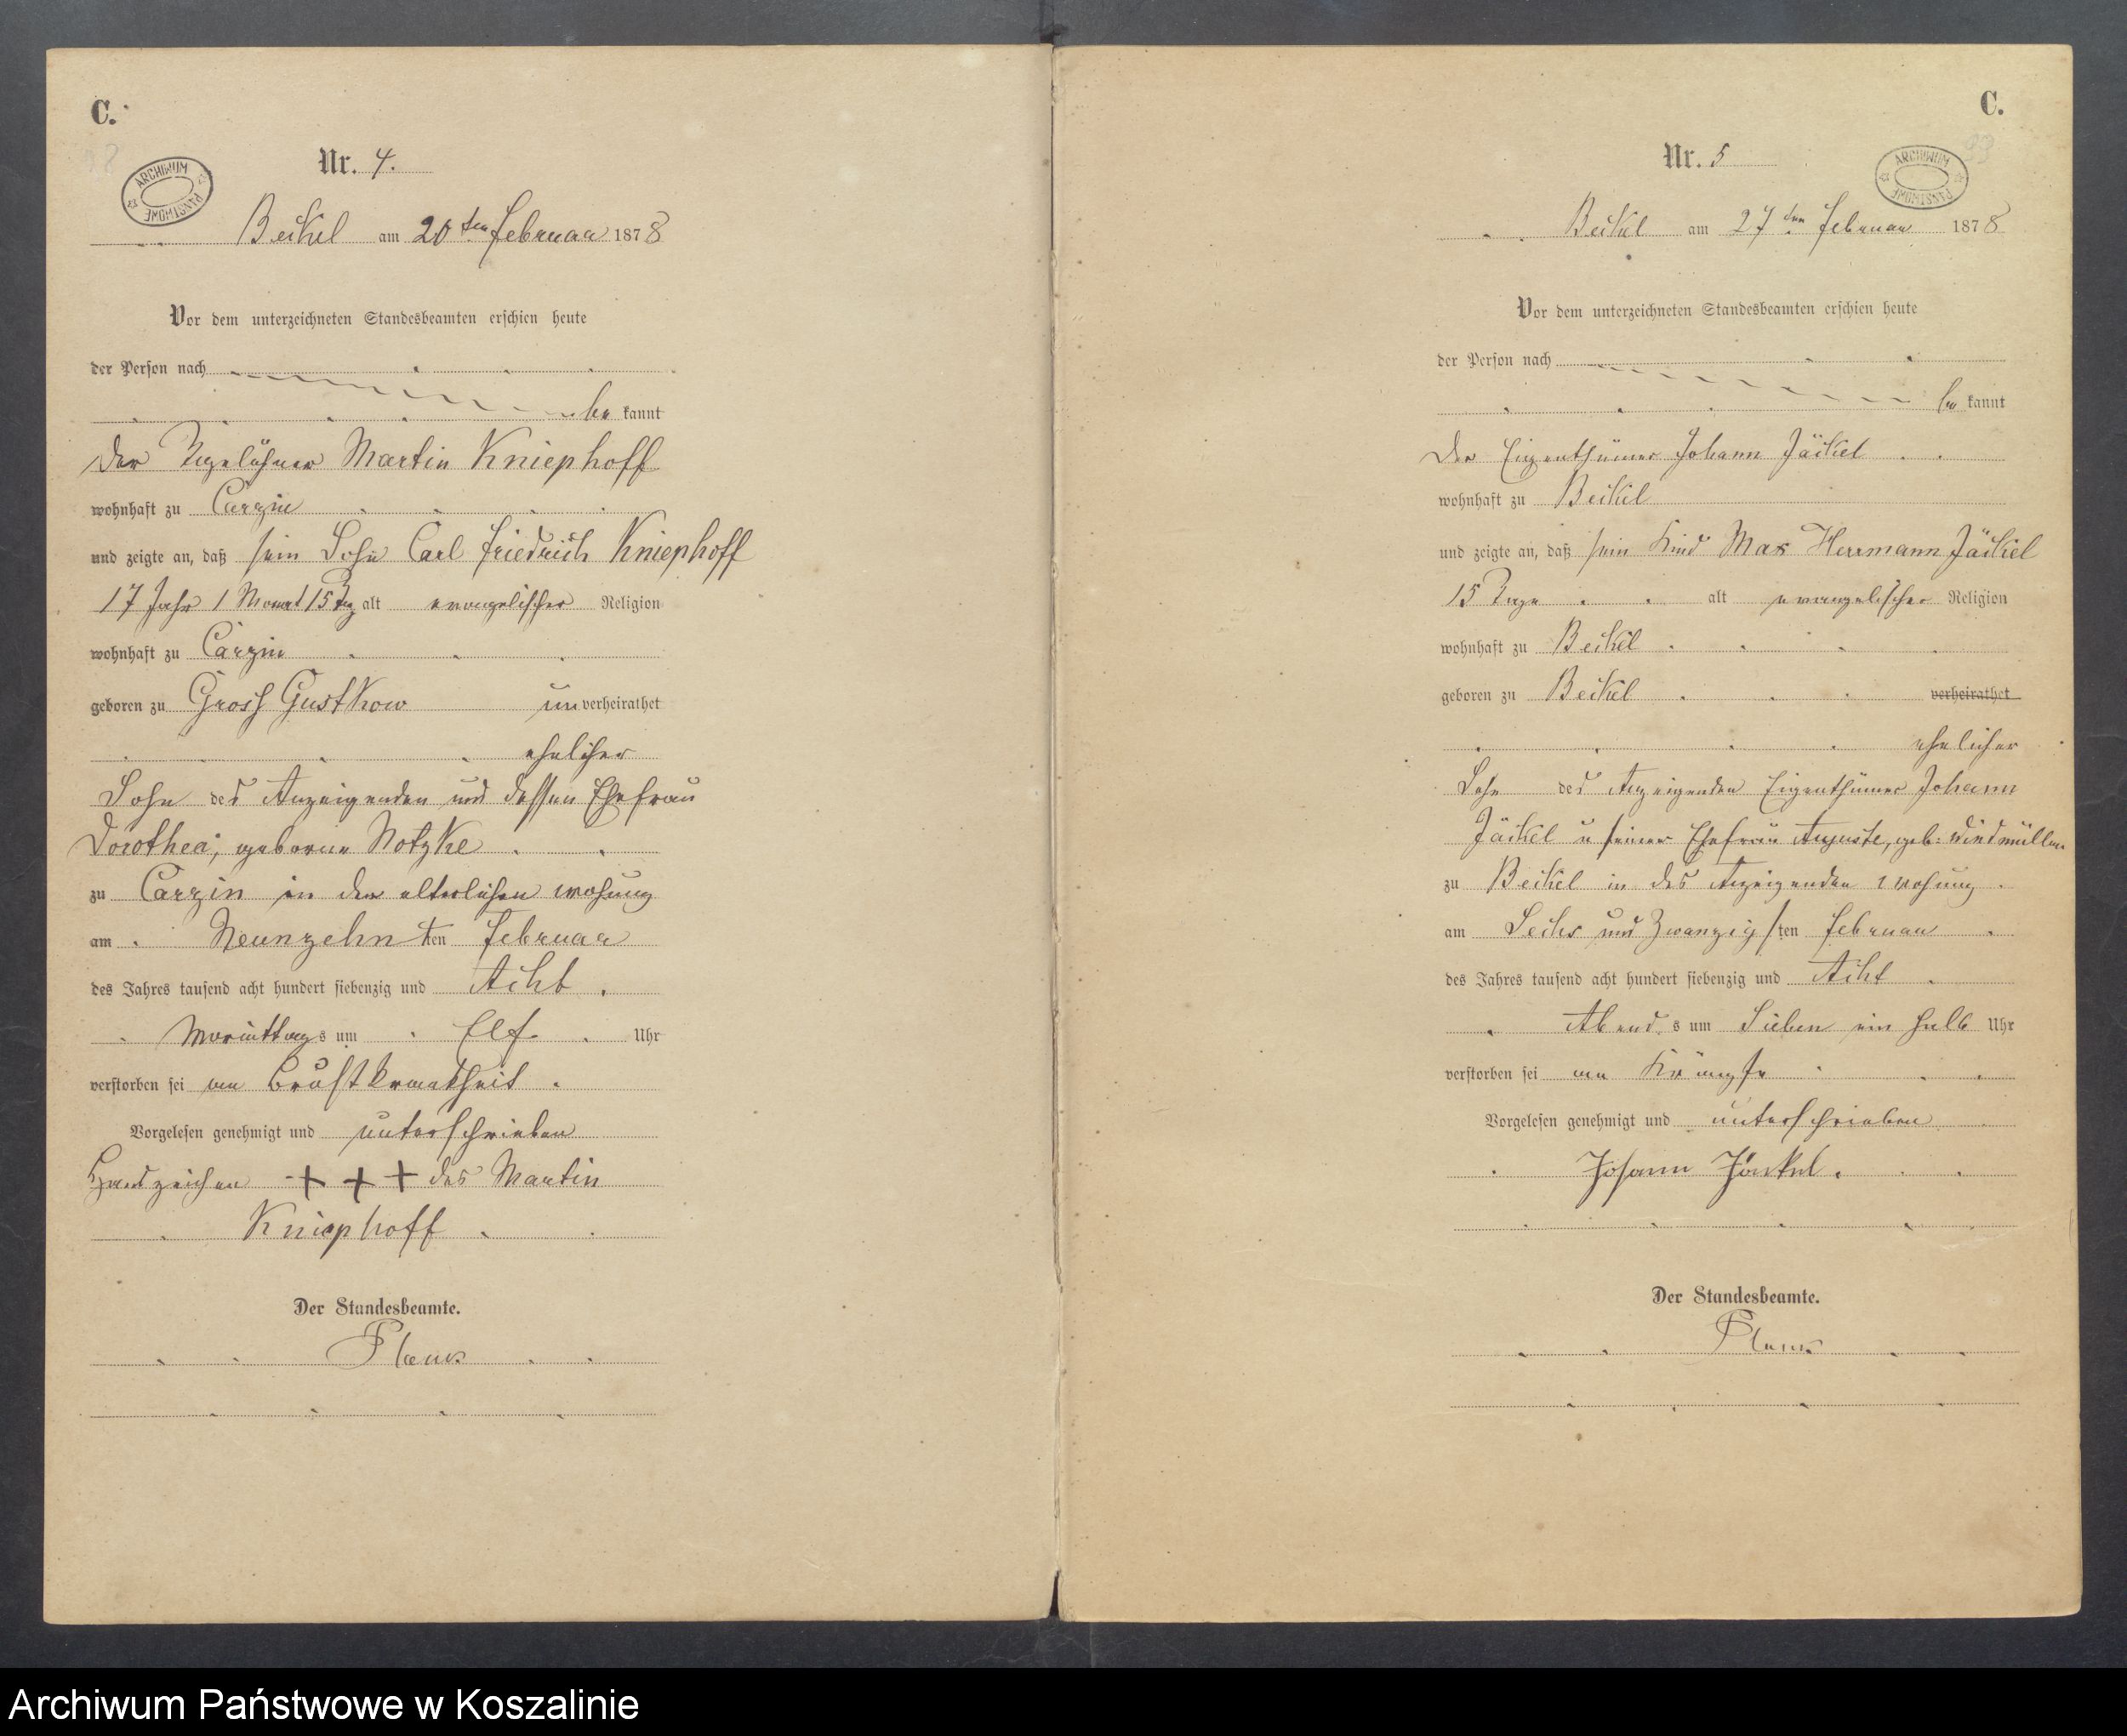 C.
Nr. 4.
ARCHIWUM PAŃSTWOWE
Beckel am 20ten Februar 1878
Vor dem unterzeichneten Standesbeamten erschien heute
der Person nach
be kannt
der Tagelöhner Martin Kniephoff
wohnhaft zu Carzin
und zeigte an, daß sein Sohn Carl Friedrich Kniephoff
17 Jahr 1 Monat 15 Tag alt evangelischer Religion
wohnhaft zu Carzin
geboren zu Gross Gustkow unverheirathet
ehelicher
Sohn des Anzeigenden und dessen Ehefrau
Dorothea, geborne Notzke
zu Carzin in der elterlichen wohung
am Neunzehn ten Februar
des Jahres tausend acht hundert siebenzig und Acht.
Vormittags um Elf Uhr
verstorben sei an Brustkrankheit.
Vorgelesen genehmigt und unterschrieben
Handzeichen + + + des Martin
Kniephoff
Der Standesbeamte.
C.
Nr. 5
ARCHIWUM PAŃSTWOWE
Beckel am 27ten Februar 1878
Vor dem unterzeichneten Standesbeamten erschien heute
der Person nach
be kannt
Der Eigenthümer Johann Jäckel
wohnhaft zu Beckel
und zeigte an, daß sein Kind Max Herrmann Jäckel
15 Tage alt evangelischer Religion
wohnhaft zu Beckel
geboren zu Beckel verheirathet
ehelicher
Sohn des Anzeigenden Eigenthümer Johann
Jäckel u seiner Ehefrau Auguste, geb: Windmüller
zu Beckel in des Anzeigenden wohung
am Sechs und Zwanzigsten Februar
des Jahres tausend acht hundert siebenzig und Acht
Abends um Sieben ein halb Uhr
verstorben sei an Krämpfe
Vorgelesen genehmigt und unterschrieben
Johann Jäckel.
Der Standesbeamte.
Archiwum Państwowe w Koszalinie